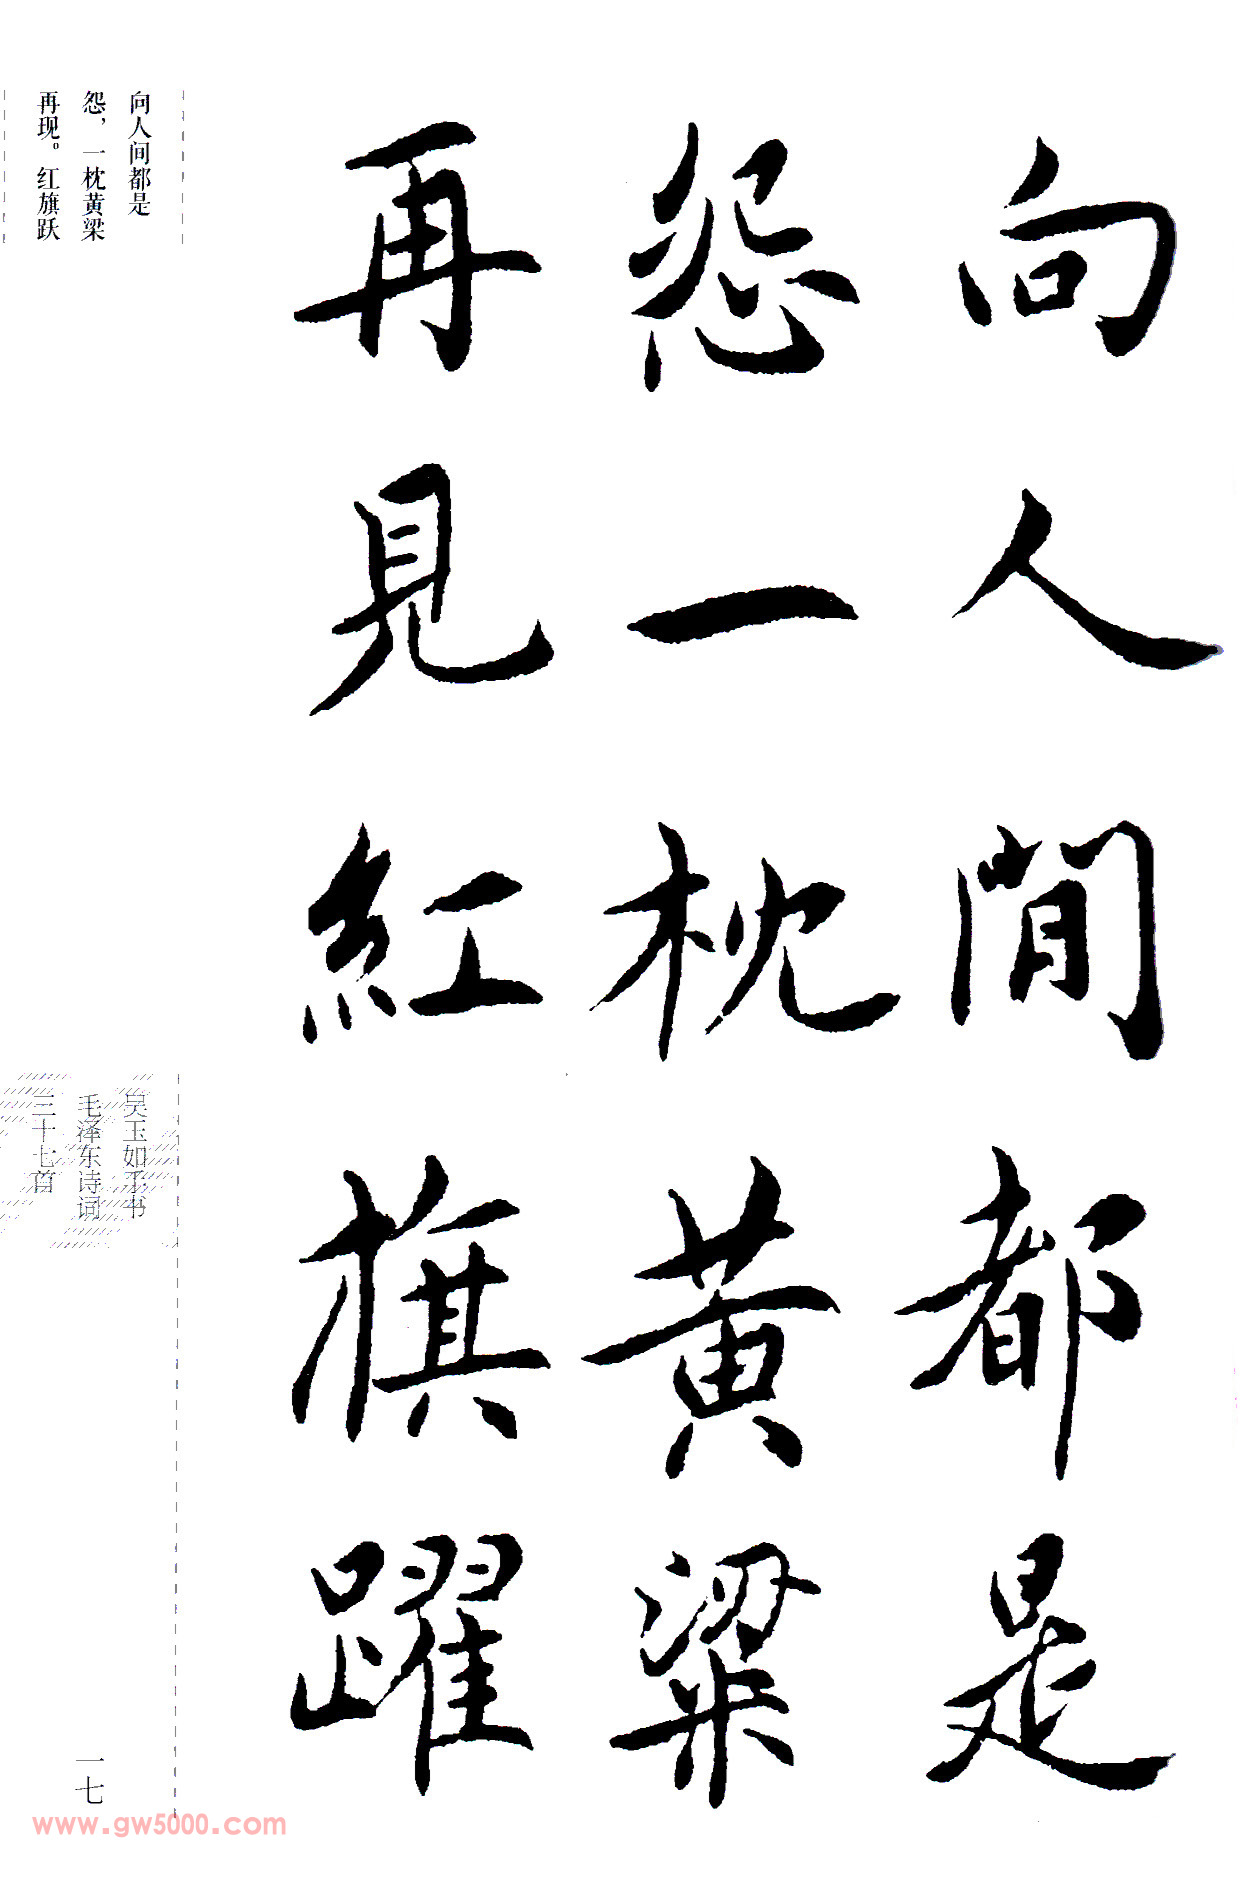 向人間都是
怨一枕黄粱
再見紅旗躍
向人间都是
怨，一枕黄梁
再现。红旗跃
吴玉如手书
毛泽东诗词
三十七首
一七
www.gw5000.com